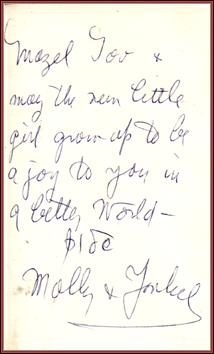 Mazel Tov &
may the new little
girl grow up to be
a joy to you in
a better World –
Molly & Yankel